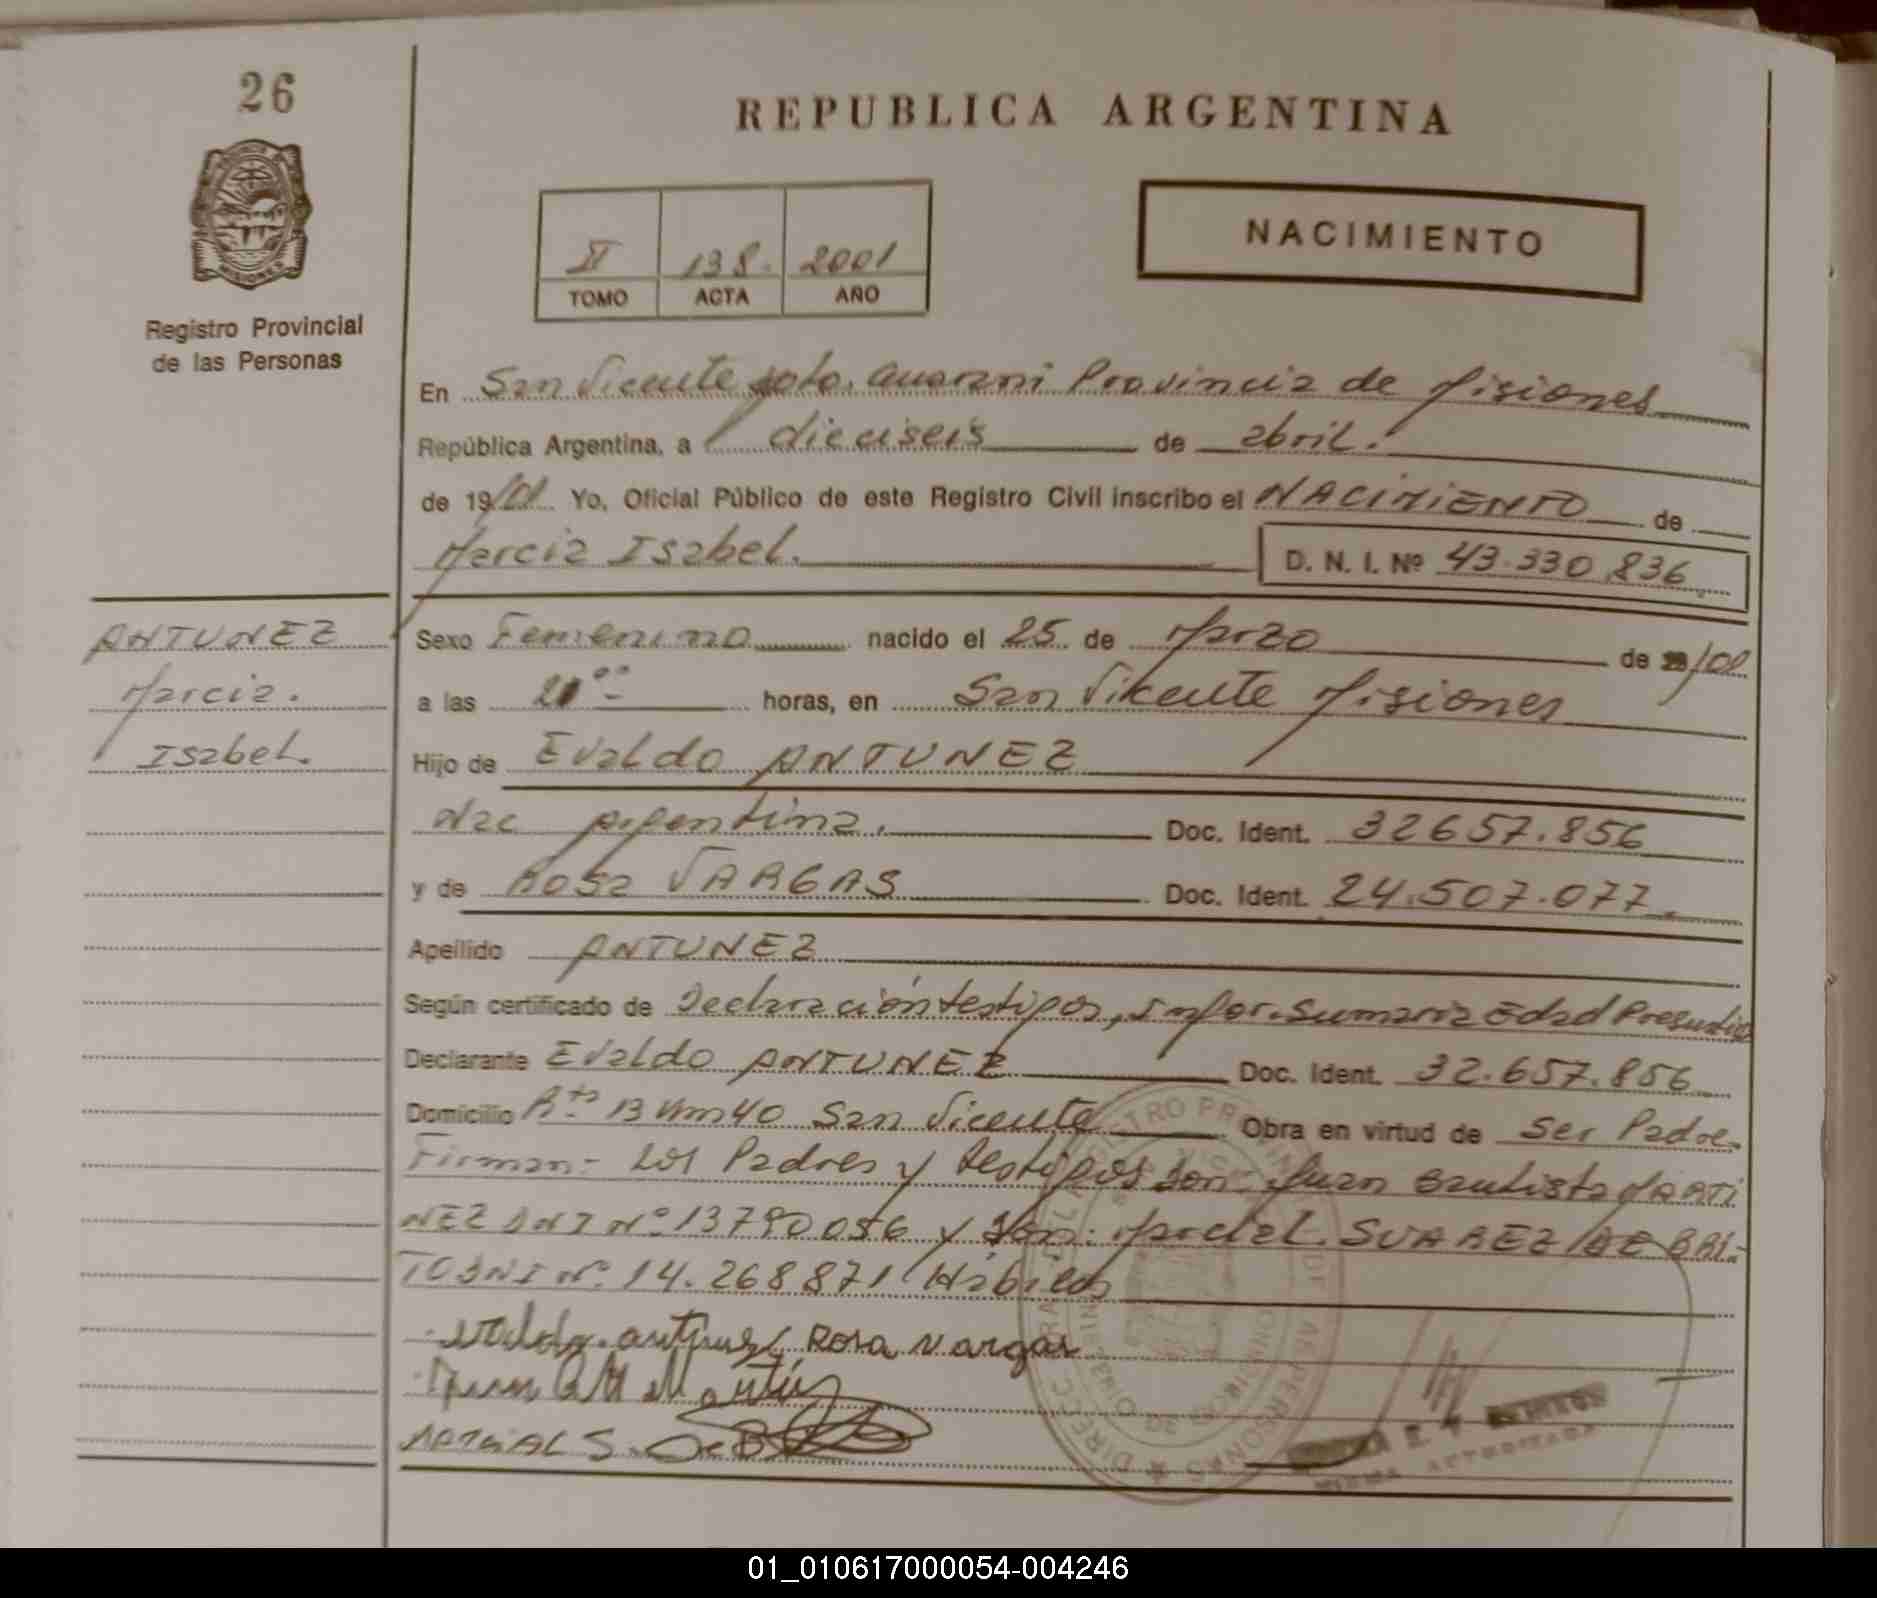 26
REPUBLICA ARGENTINA
NACIMIENTO
II 138. 2001
TOMO ACTA AÑO
Registro Provincial
de las Personas
En San Vicente Dpto. Guarani Provincia de Misiones
República Argentina, a dieciseis de abril.
de 19/01 Yo, Oficial Público de este Registro Civil inscribo el NACIMIENTO de
Marcia Isabel. D. N. I. Nº 43.330.836
ANTUNEZ
Marcia.
Isabel.
Sexo Femenino nacido el 25 de Marzo de /01
a las horas, en San Vicente Misiones
Hijo de Evaldo ANTUNEZ
nac Argentina. Doc. Ident. 32657.856
y de Rosa VARGAS Doc. Ident. 24.507.077
Apellido ANTUNEZ
Según certificado de Declaración testigos, Infor. Sumaria Edad
Declarante Evaldo ANTUNEZ Doc. Ident. 32.657.856
Domicilio Rta 13 Km 40 San Vicente Obra en virtud de Ser Padre.
Firman:- Los Padres y testigos son: Juan Bautista MARTI
NEZ DNI Nº 13790056 y Don: Marcial SUAREZ DE BRI-
TO DNI Nº 14.268871 Hábiles
Rosa Vargas
FIRMA AUTORIZADA
01_010617000054-004246